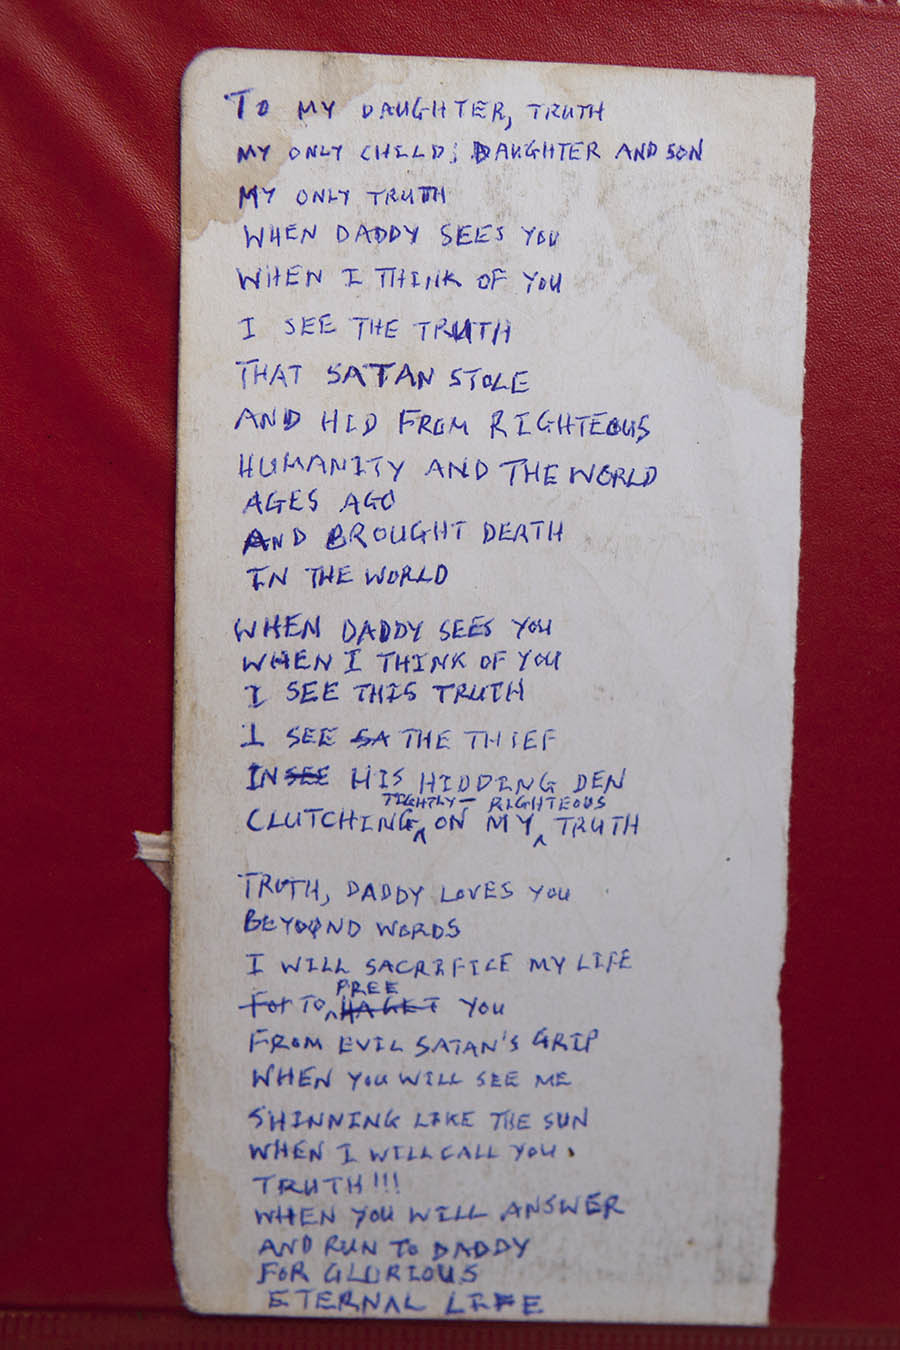 TO MY DAUGHTER, TRUTH
MY ONLY CHILD; DAUGHTER AND SON
MY ONLY TRUTH
WHEN DADDY SEES YOU
WHEN I THINK OF YOU
I SEE THE TRUTH
THAT SATAN STOLE
AND HID FROM RIGHTEOUS
HUMANITY AND THE WORLD
AGES AGO
AND BROUGHT DEATH
IN THE WORLD
WHEN DADDY SEES YOU
WHEN I THINK OF YOU
I SEE THIS TRUTH
I SEE SA THE THIEF
IN SEE HIS HIDDING DEN
TIGHTLY - RIGHTEOUS
CLUTCHING ^ ON MY ^ TRUTH
TRUTH, DADDY LOVES YOU
BEYOOND WORDS
I WILL SACRIFICE MY LIFE
FREE
For TO ^ YOU
FROM EVIL SATAN'S GRIP
WHEN YOU WILL SEE ME
SHINNING LIKE THE SUN
WHEN I WILL CALL YOU.
TRUTH!!!
WHEN YOU WILL ANSWER
AND RUN TO DADDY
FOR GLORIOUS
ETERNAL LIFE